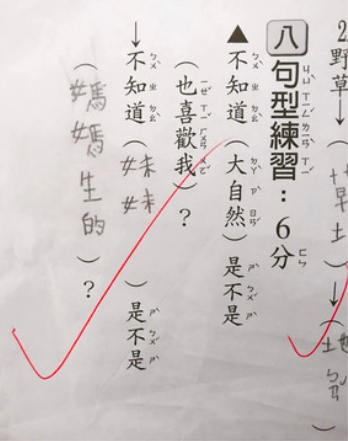 2野草→(土)→(地
八 句型練習：6分
▲不知道(大自然)是不是
(也喜歡我)？
→不知道(妹妹)是不是
(媽媽生的)？